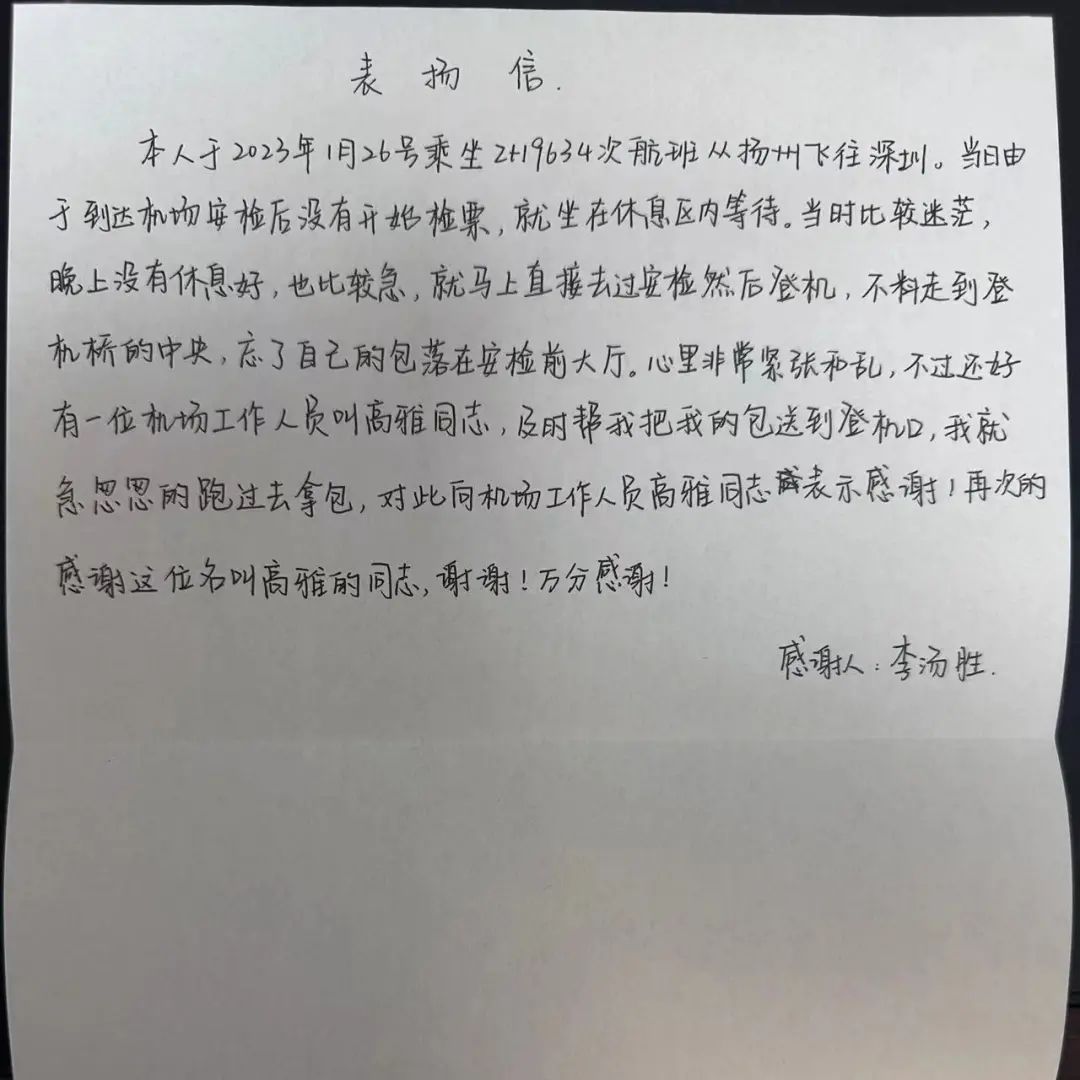 表扬信.
本人于2023年1月26号乘坐ZH9634次航班从扬州飞往深圳。当日由
于到达机场安检后没有开始检票,就坐在休息区内等待。当时比较迷茫,
晚上没有休息好,也比较急,就马上直接去过安检然后登机,不料走到登
机桥的中央,忘了自己的包落在安检前大厅。心里非常紧张和乱,不过还好
有一位机场工作人员叫高雅同志,及时帮我把我的包送到登机口,我就
急忽忽的跑过去拿包,对此向机场工作人员高雅同志表示感谢!再次的
感谢这位名叫高雅的同志,谢谢!万分感谢!
感谢人:李汤胜.